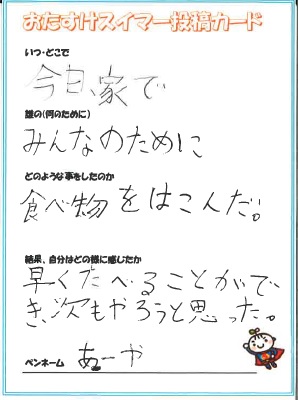 おたすけスイマー投稿カード
いつ・どこで
今日、家で
誰の(何のために)
みんなのために
どのような事をしたのか
食べ物をはこんだ。
結果、自分はどの様に感じたか
早くたべることがで
き、次もやろうと思った。
ペンネーム あーや